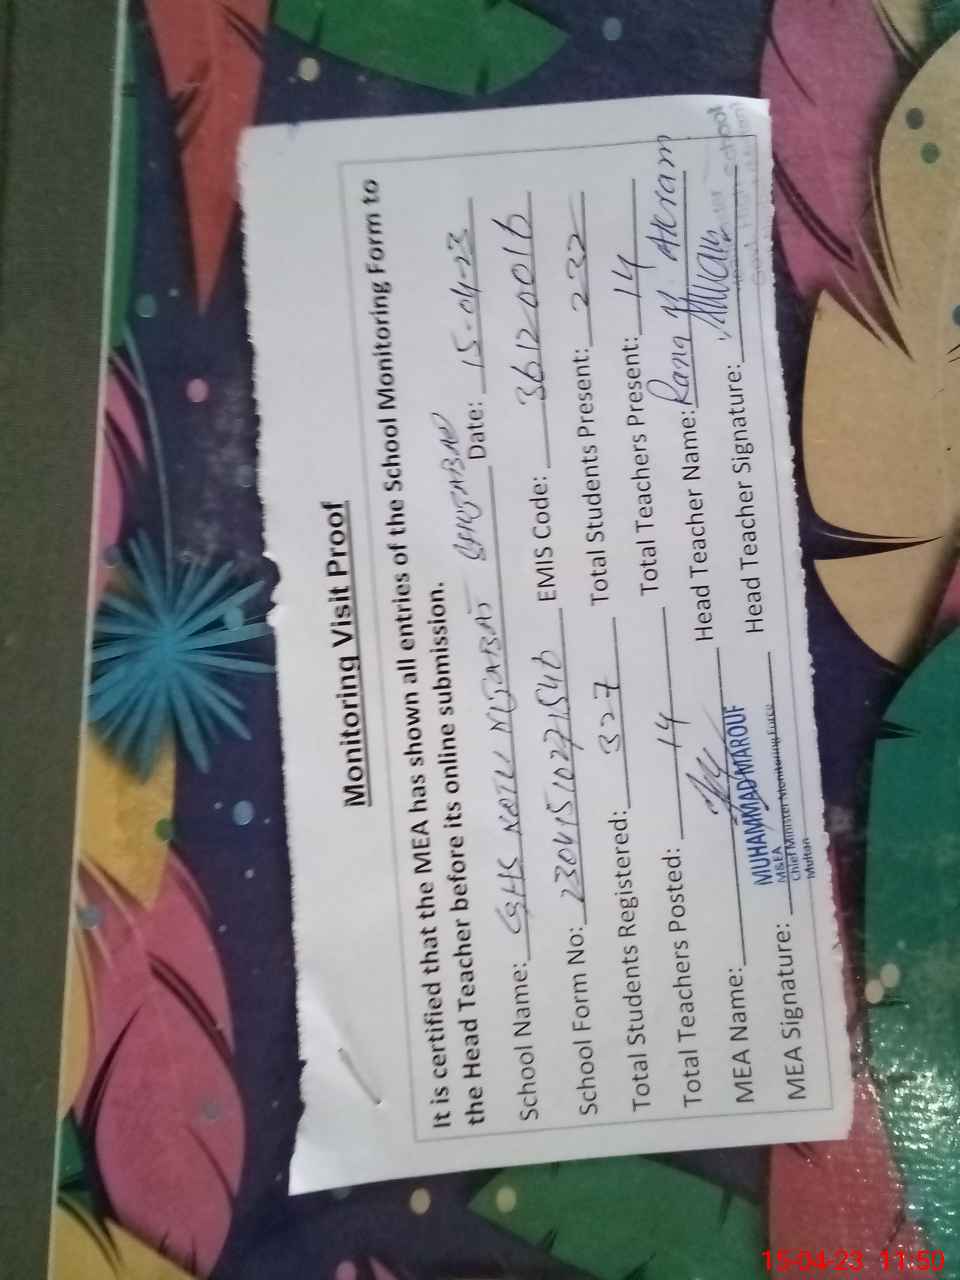 Monitoring Visit Proof
It is certified that the MEA has shown all entries of the School Monitoring Form to
the Head Teacher before its online submission.
School Name: GHS Date: 15-04-23
School Form No: EMIS Code: 36120016
Total Students Registered: 327 Total Students Present: 232
Total Teachers Posted: 14 Total Teachers Present: 14
MEA Name: Head Teacher Name: Rana M. Akram
MUHAMMAD MAROUF
MEA Signature: Head Teacher Signature:
M&EA
Chief Minister Monitoring Force
Multan
School
15-04-23 11:50